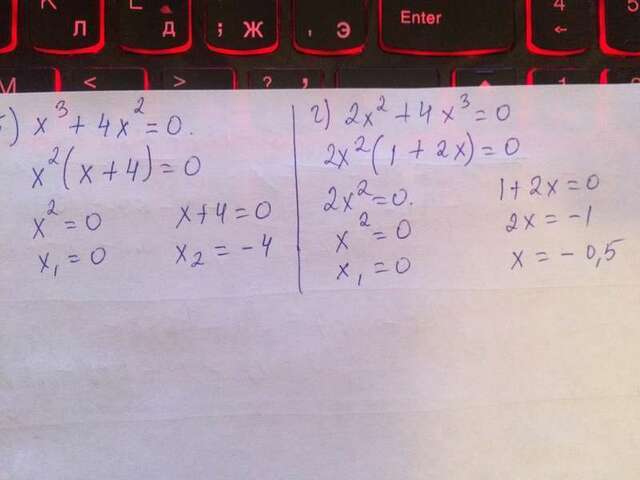 Л
Д
; Ж
, Э
Enter
4
←
5
<
>
?
,
1
) x³ + 4x² = 0.
x²(x + 4) = 0
x² = 0 x + 4 = 0
x₁ = 0 x₂ = -4
г) 2x² + 4x³ = 0
2x²(1 + 2x) = 0
2x² = 0. 1 + 2x = 0
x² = 0 2x = -1
x₁ = 0 x = -0,5